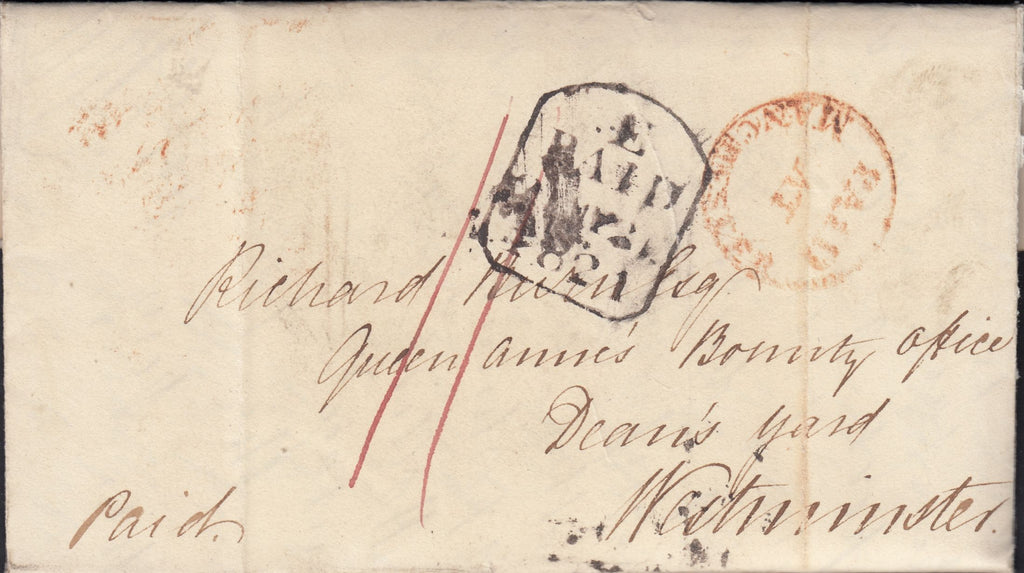 E
PAID
1821
MANCHESTER
PAID
Richard Esq
Queen Anne's Bounty office
Dean's yard
Westminster.
Paid.